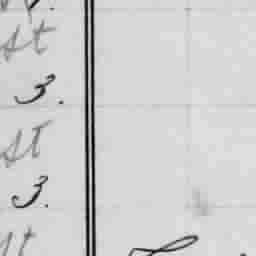 st
3.
st
3.
st